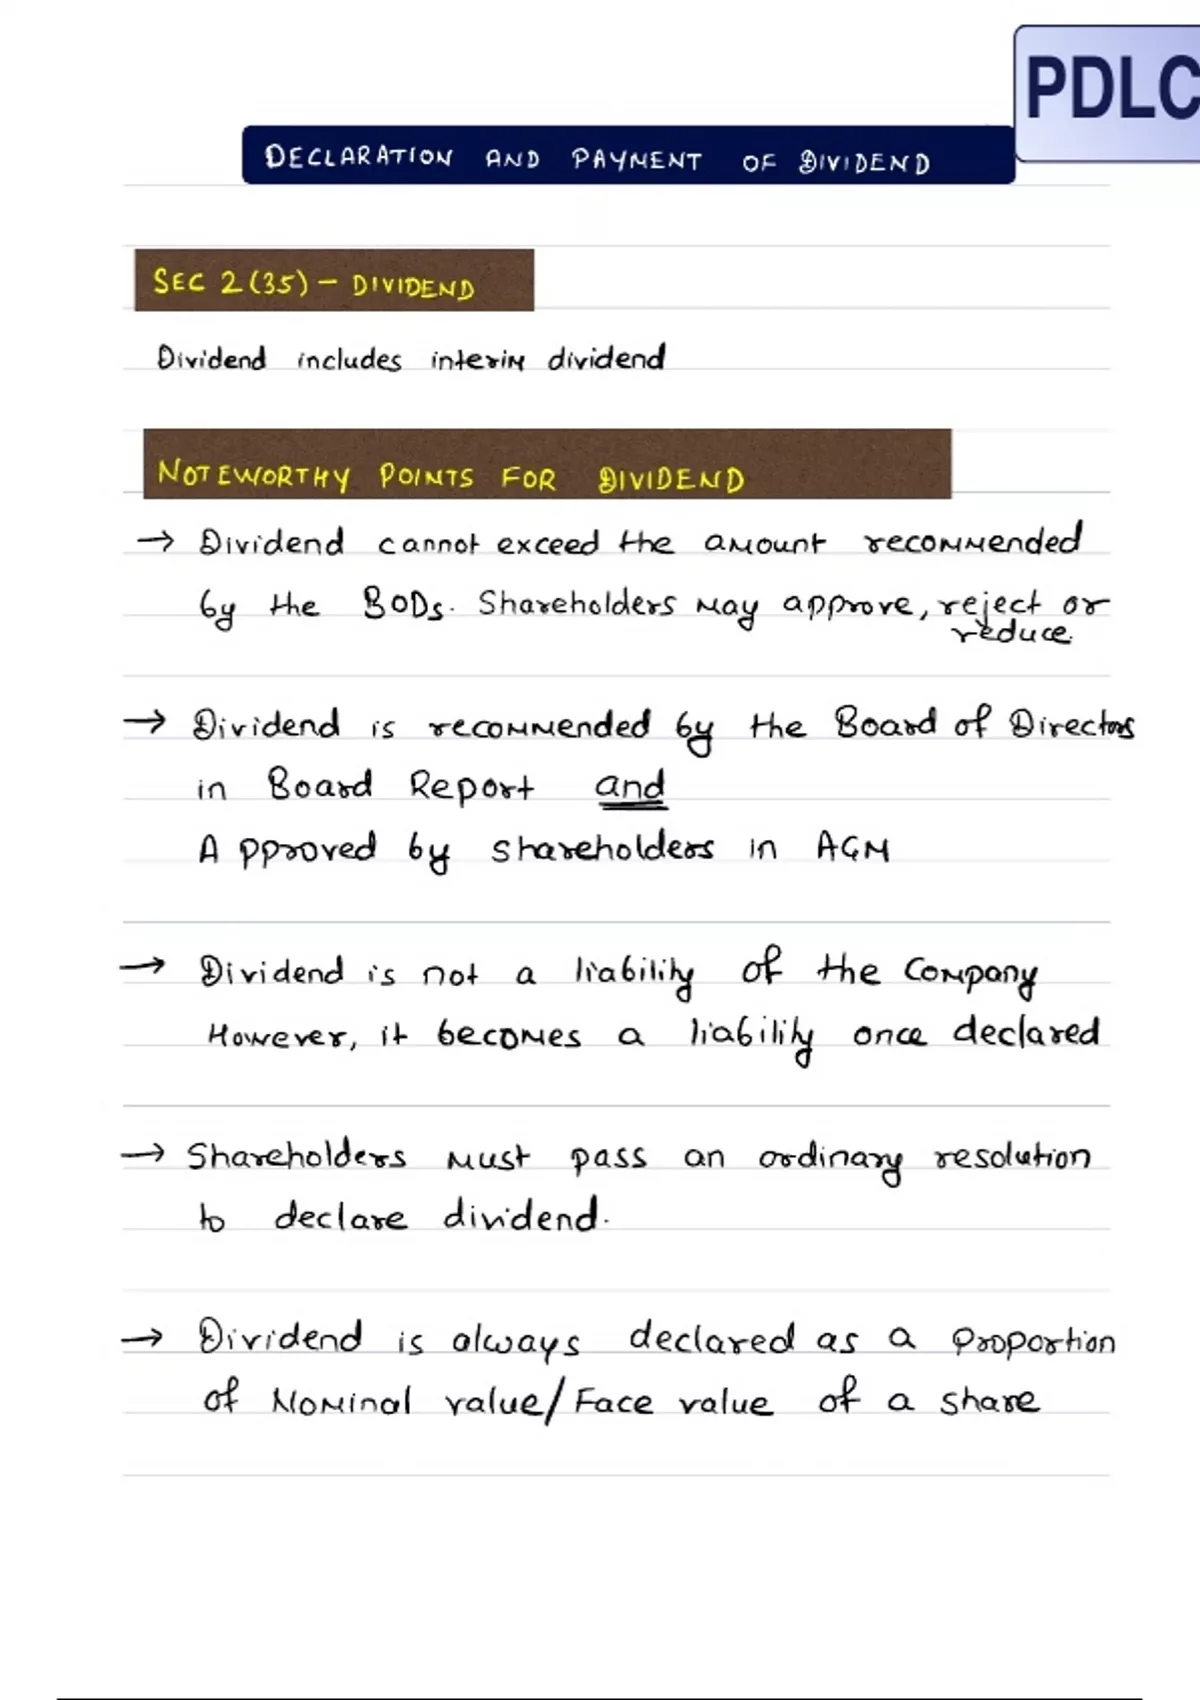 PDLC
DECLARATION AND PAYMENT OF DIVIDEND
SEC 2(35) – DIVIDEND
Dividend includes interim dividend
NOTEWORTHY POINTS FOR DIVIDEND
→ Dividend cannot exceed the amount recommended
by the BODs. Shareholders may approve, reject or
reduce.
→ Dividend is recommended by the Board of Directors
in Board Report and
Approved by shareholders in AGM
→ Dividend is not a liability of the Company
However, it becomes a liability once declared
→ Shareholders must pass an ordinary resolution
to declare dividend.
→ Dividend is always declared as a proportion
of Nominal value/Face value of a share